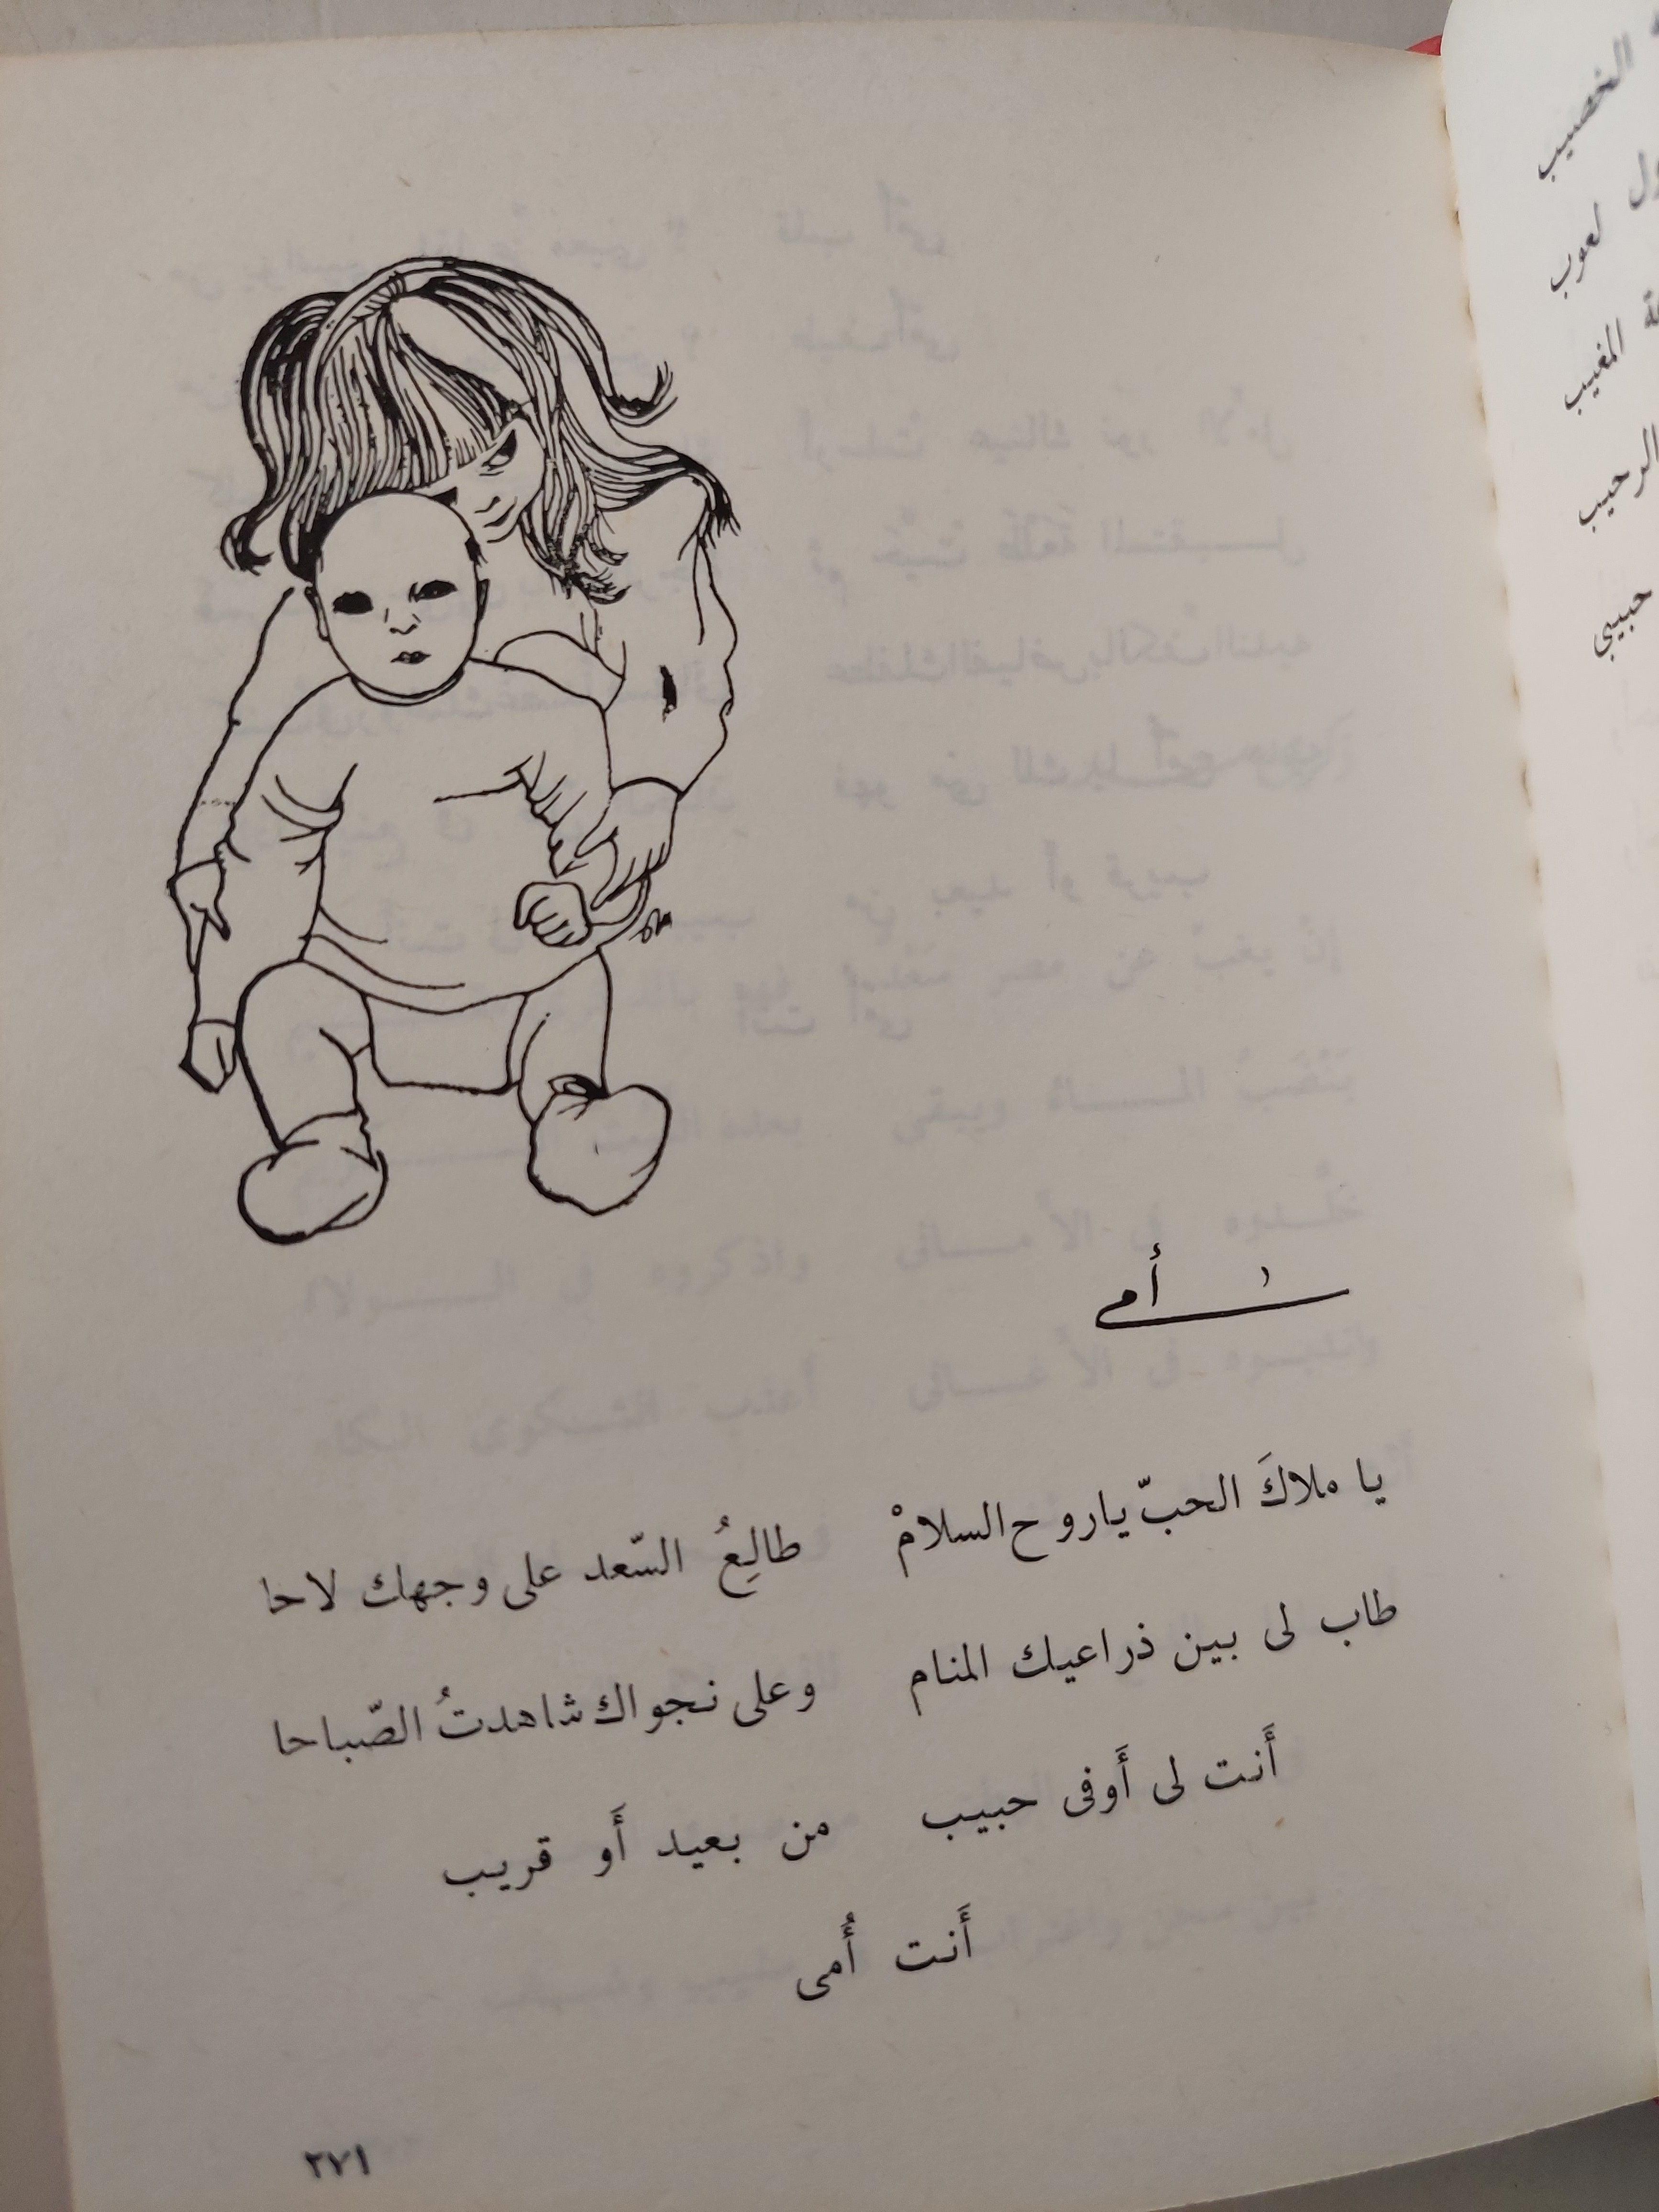 أمى
يا ملاكَ الحبّ ياروح السلامْ طالِعُ السّعد على وجهك لاحا
طاب لى بين ذراعيك المنام وعلى نجواك شاهدتُ الصّباحا
أَنت لى أَوفى حبيب من بعيد أَو قريب
أَنت أُمى
٢٧١
الخصيب
لعوب
المغيب
الرحيب
حبيبي